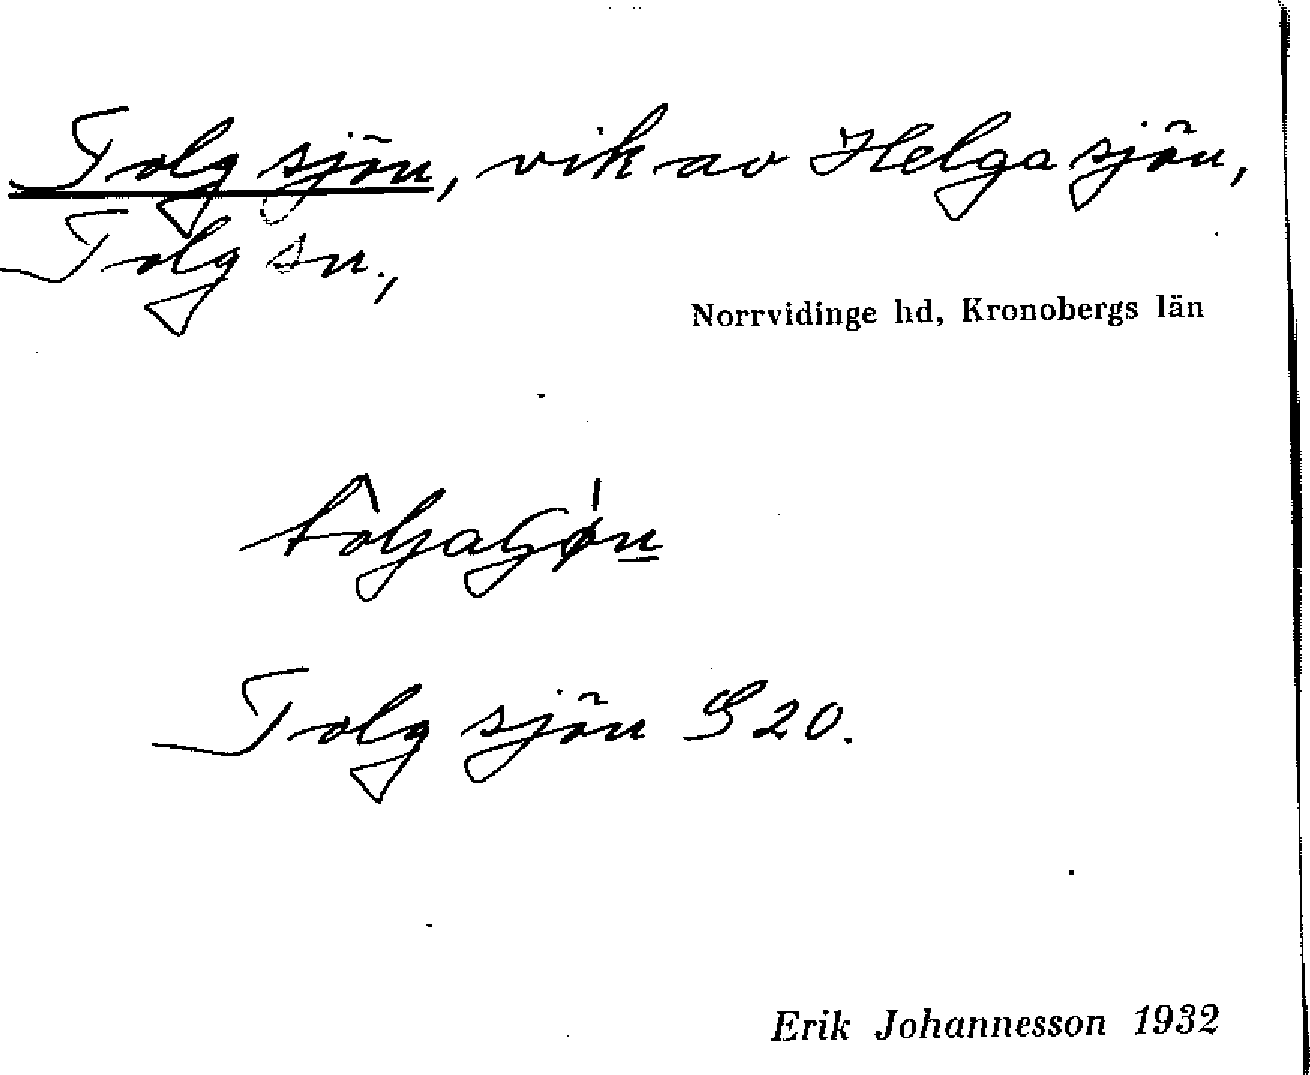 Tolgsjön, vik av Helgasjön,
Tolg sn.,
Norrvidinge hd, Kronobergs län
Tolgsjön S 20.
Erik Johannesson 1932